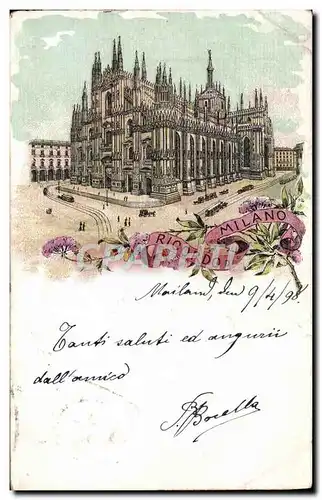 RICORDO DI
MILANO
Mailand, den 9/4/98.
Tanti saluti ed augurii
dall'amico